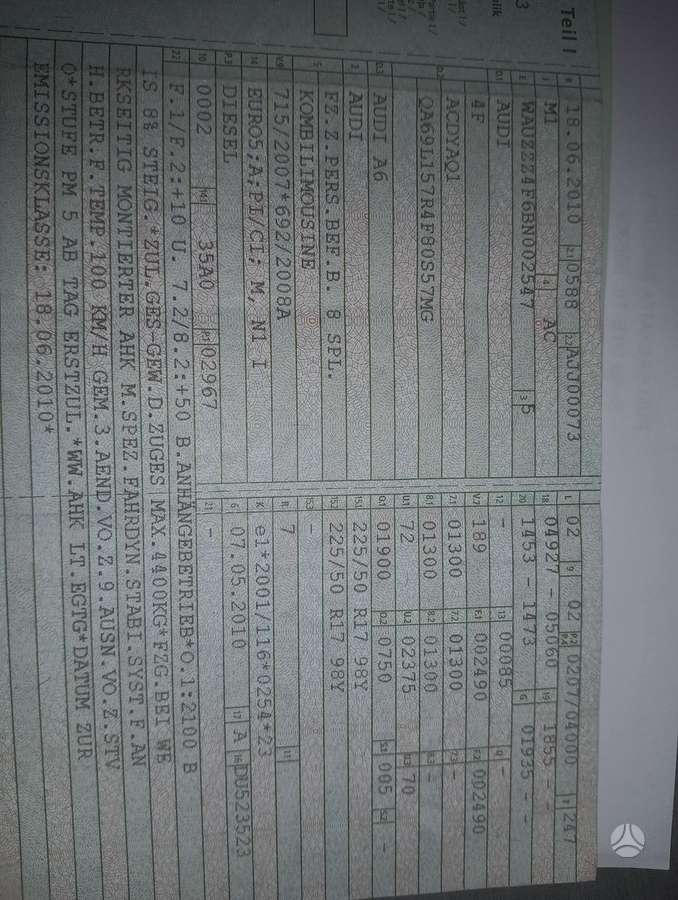 Teil I
B 18.06.2010 2.1 0588 2.2 AJJ00073
J M1 4 AC
E WAUZZZ4F6BN002547 3 5
D.1 AUDI
4F
D.2 ACDYAQ1
QA69L157R4F80S57MG
D.3 AUDI A6
2 AUDI
FZ.Z.PERS.BEF.B. 8 SPL.
5 KOMBILIMOUSINE
V.9 715/2007*692/2008A
14 EURO5;A;PI/CI; M, N1 I
P.3 DIESEL
10 0002 14.1 35A0 P.1 02967
L 02 9 02 P.2 P.4 0207/04000 T 247
18 04927 - 05060 19 1855 - -
20 1453 - 1473 G 01935 - -
12 - 13 00085 Q -
V.7 189 F.1 002490 F.2 002490
7.1 01300 7.2 01300 7.3 -
8.1 01300 8.2 01300 8.3 -
U.1 72 U.2 02375 U.3 70
O.1 01900 O.2 0750 S.1 005 S.2 -
15.1 225/50 R17 98Y
15.2 225/50 R17 98Y
15.3 -
R 7 11
K e1*2001/116*0254*23
6 07.05.2010 17 A 16 DU523523
21 -
22 F.1/F.2:+10 U. 7.2/8.2:+50 B.ANHÄNGEBETRIEB*O.1:2100 B
IS 8% STEIG.*ZUL.GES-GEW.D.ZUGES MAX.4400KG*FZG.BEI WE
RKSEITIG MONTIERTER AHK M.SPEZ.FAHRDYN.STABI.SYST.F.AN
H.BETR.F.TEMP.100 KM/H GEM.3.AEND.VO.Z.9.AUSN.VO.Z.STV
O*STUFE PM 5 AB TAG ERSTZUL.*WW.AHK LT.EGTG*DATUM ZUR
EMISSIONSKLASSE: 18.06.2010*